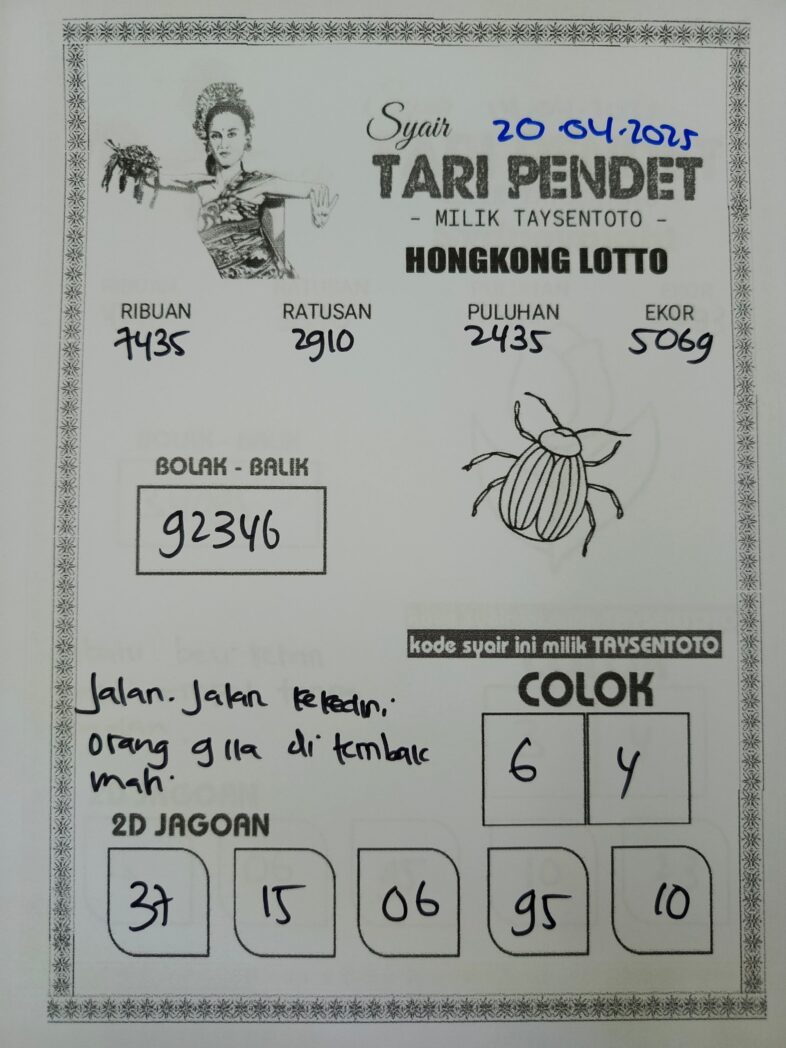 Syair 20.04.2025
TARI PENDET
- MILIK TAYSENTOTO -
HONGKONG LOTTO
RIBUAN RATUSAN PULUHAN EKOR
7435 2910 2435 5069
BOLAK - BALIK
92346
kode syair ini milik TAYSENTOTO
COLOK
6 4
Jalan. Jalan kekediri
orang gila di tembak
mati.
2D JAGOAN
37 15 06 95 10